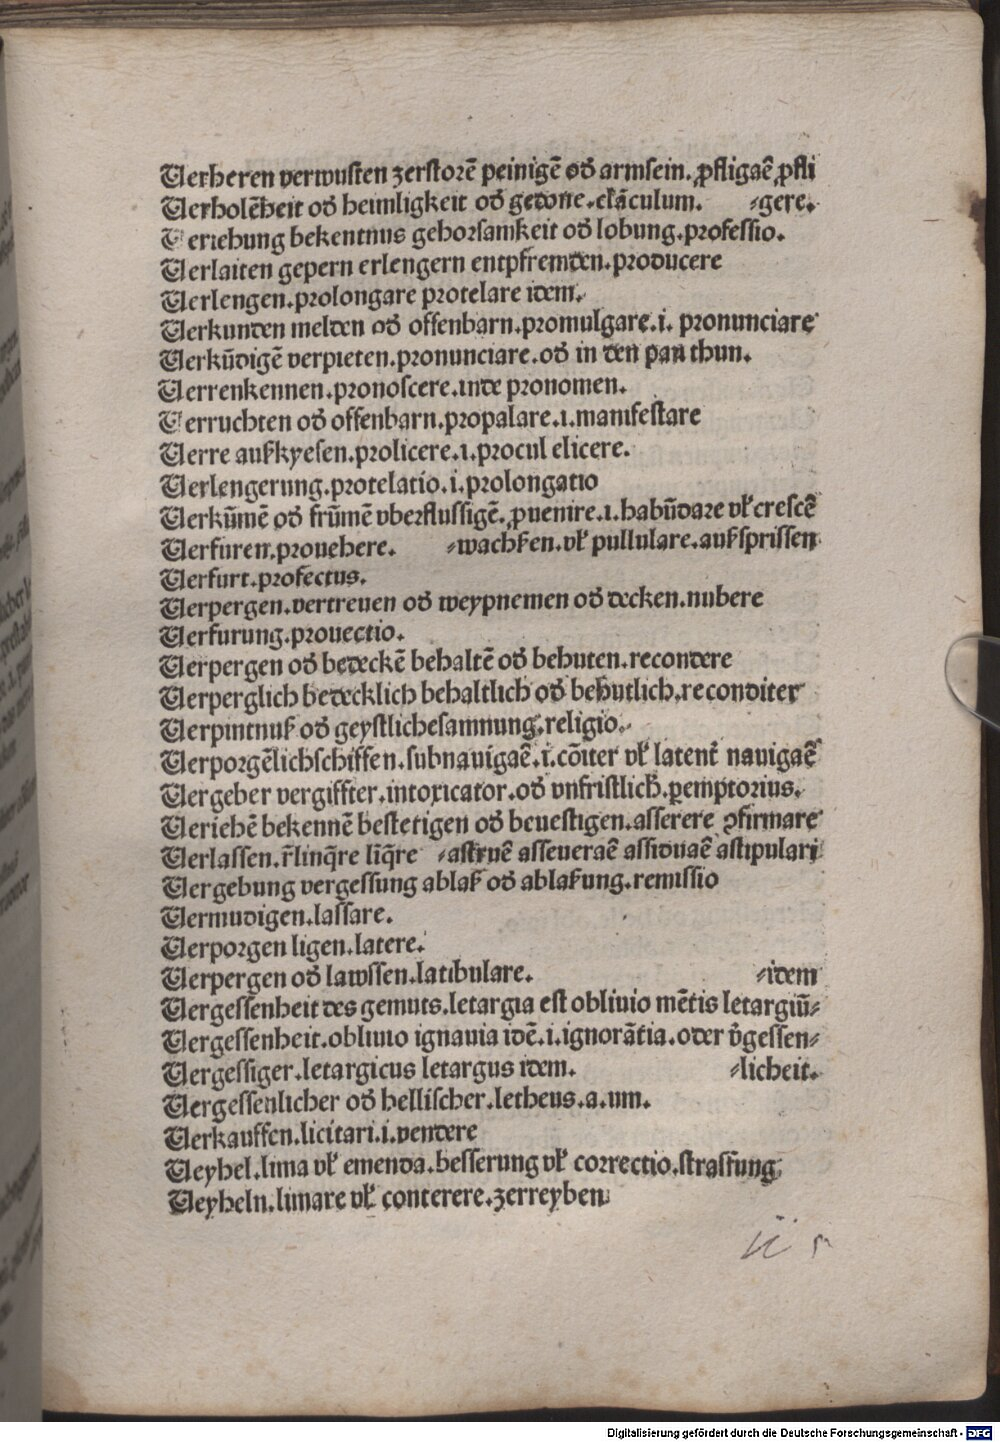 Uerheren verwusten zerstorē peinigē od̕ armsein.ꝓfligaē ꝓfli
Uerholēheit od̕ heimligkeit od̕ getone.clāculum. ⸗gere.
Ueriehung bekentnus gehorsamkeit od̕ lobung.professio.
Uerlaiten gepern erlengern entpfremden.producere
Uerlengen.prolongare protelare idem.
Uerkunden melden od̕ offenbarn.promulgare.i. pronunciare
Uerkūdigē verpieten.pronunciare.od̕ in den pan thun.
Uerrenkennen.pronoscere.inde pronomen.
Uerruchten od̕ offenbarn.propalare.i.manifestare
Uerre außkyesen.prolicere.i.procul elicere.
Uerlengerung.protelatio.i.prolongatio
Uerkūmē od̕ frūmē vberflussigē.ꝓuenire.i.habūdare vł crescē
Uerfuren.prouehere. ⸗wachßen.vł pullulare.außsprissen
Uerfurt.profectus.
Uerpergen.vertreuen od̕ weypnemen od̕ decken.nubere
Uerfurung.prouectio.
Uerpergen od̕ bedeckē behaltē od̕ behuten.recondere
Uerperglich bedecklich behaltlich od̕ behutlich.reconditer
Uerpintnuß od̕ geystlichesamnung.religio.
Uerporgēlichschiffen.subnauigaē.i.cōiter vł latent̕ nauigaē
Uergeber vergiffter.intoxicator.od̕ vnfristlich̕.ꝑemptorius.
Ueriehē bekennē bestetigen od̕ beuestigen.asserere ꝯfirmare
Uerlassen.r̄linq̄re liq̄re ⸗astruē asseueraē assiduaē astipulari
Uergebung vergessung ablaß od̕ ablaßung.remissio
Uermudigen.lassare.
Uerporgen ligen.latere.
Uerpergen od̕ lawssen.latibulare. ⸗idem
Uergessenheit des gemuts.letargia est obliuio mētis letargiū⸗
Uergessenheit.obliuio ignauia idē.i.ignorātia.oder v̄gessen⸗
Uergessiger.letargicus letargus idem. ⸗licheit.
Uergessenlicher od̕ hellischer.letheus.a.um.
Uerkauffen.licitari.i.vendere
Ueyhel.lima vł emenda.besserung vł correctio.straffung
Ueyheln.limare vł conterere.zerreyben
Digitalisierung gefördert durch die Deutsche Forschungsgemeinschaft - DFG